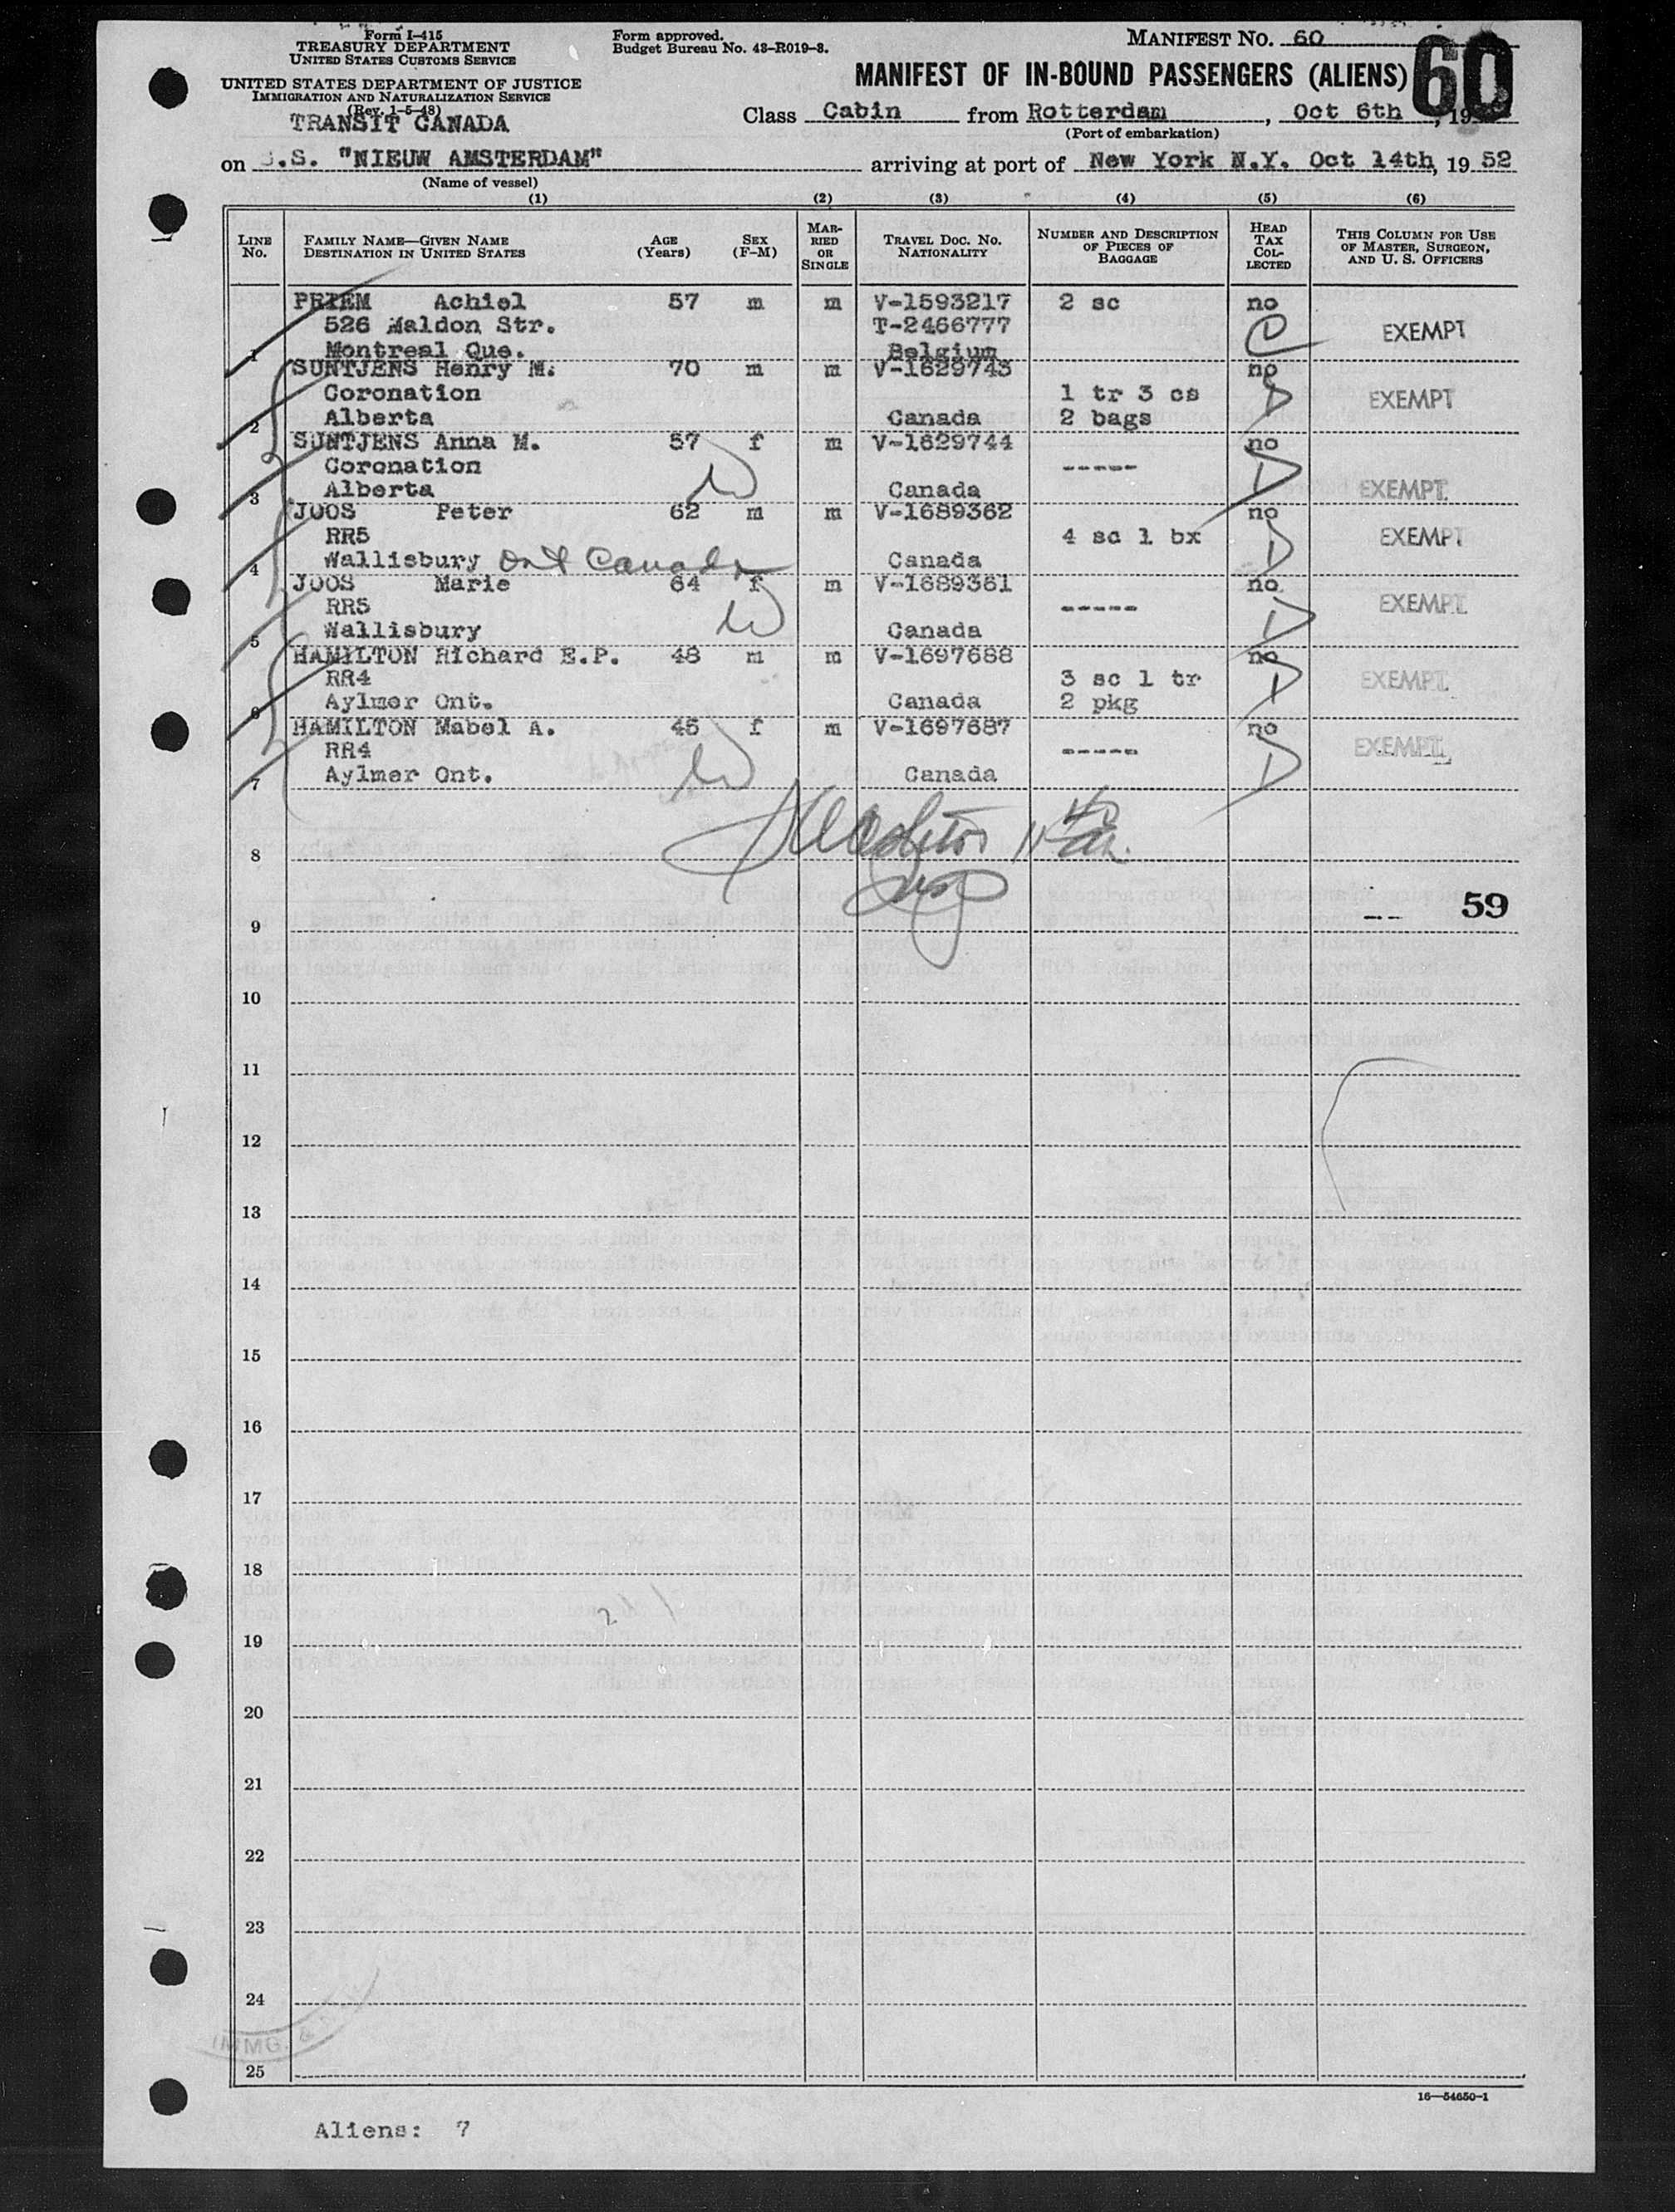 Form I-415
TREASURY DEPARTMENT
UNITED STATES CUSTOMS SERVICE
UNITED STATES DEPARTMENT OF JUSTICE
IMMIGRATION AND NATURALIZATION SERVICE
(Rev. 1-5-48)
TRANSIT CANADA
Form approved.
Budget Bureau No. 43-R019-8.
MANIFEST NO. 60
60
MANIFEST OF IN-BOUND PASSENGERS (ALIENS)
Class Cabin from Rotterdam, Oct 6th, 19
(Port of embarkation)
on S.S. "NIEUW AMSTERDAM" arriving at port of New York N.Y. Oct 14th, 19 52
(Name of vessel)
(1) (2) (3) (4) (5) (6)
LINE No. FAMILY NAME—GIVEN NAME DESTINATION IN UNITED STATES AGE (Years) SEX (F-M) MARRIED OR SINGLE TRAVEL DOC. NO. NATIONALITY NUMBER AND DESCRIPTION OF PIECES OF BAGGAGE HEAD TAX COLLECTED THIS COLUMN FOR USE OF MASTER, SURGEON, AND U. S. OFFICERS
PRIEM Achiel 57 m m V-1593217 2 sc no
526 Maldon Str. T-2466777 EXEMPT
1 Montreal Que. Belgium
SUNTJENS Henry M. 70 m m V-1629743 no
Coronation 1 tr 3 cs EXEMPT
2 Alberta Canada 2 bags
SUNTJENS Anna M. 57 f m V-1629744 no
Coronation -----
3 Alberta Canada EXEMPT
JOOS Peter 62 m m V-1689362 no
RR5 4 sc 1 bx EXEMPT
4 Wallisbury Ont Canada Canada
JOOS Marie 64 f m V-1689361 no
RR5 ----- EXEMPT
5 Wallisbury Canada
HAMILTON Richard E.P. 48 m m V-1697688 no
RR4 3 sc 1 tr EXEMPT
6 Aylmer Ont. Canada 2 pkg
HAMILTON Mabel A. 45 f m V-1697687 no
RR4 ----- EXEMPT
7 Aylmer Ont. Canada
8
9 -- 59
10
11
12
13
14
15
16
17
18
19
20
21
22
23
24
IMMG. &
25
16—54650-1
Aliens: 7